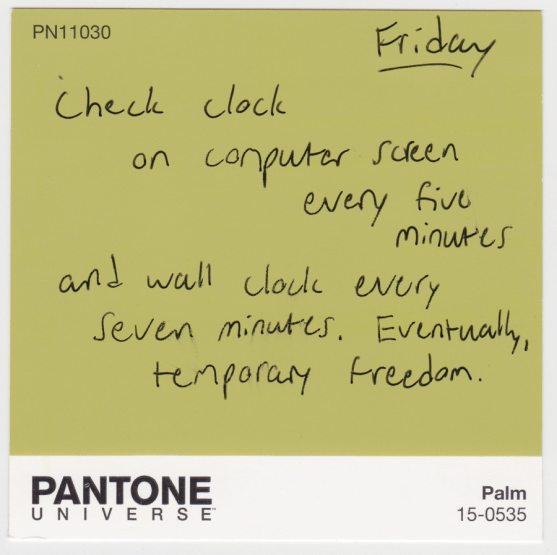 PN11030
Friday
Check clock
on computer screen
every five
minutes
and wall clock every
seven minutes. Eventually,
temporary freedom.
PANTONE
UNIVERSE™
Palm
15-0535